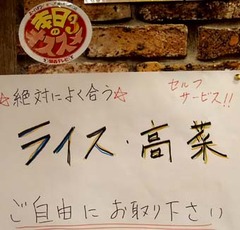 本日のオススメ
☆絶対によく合う☆
セルフサービス!!
ライス・高菜
ご自由にお取り下さい